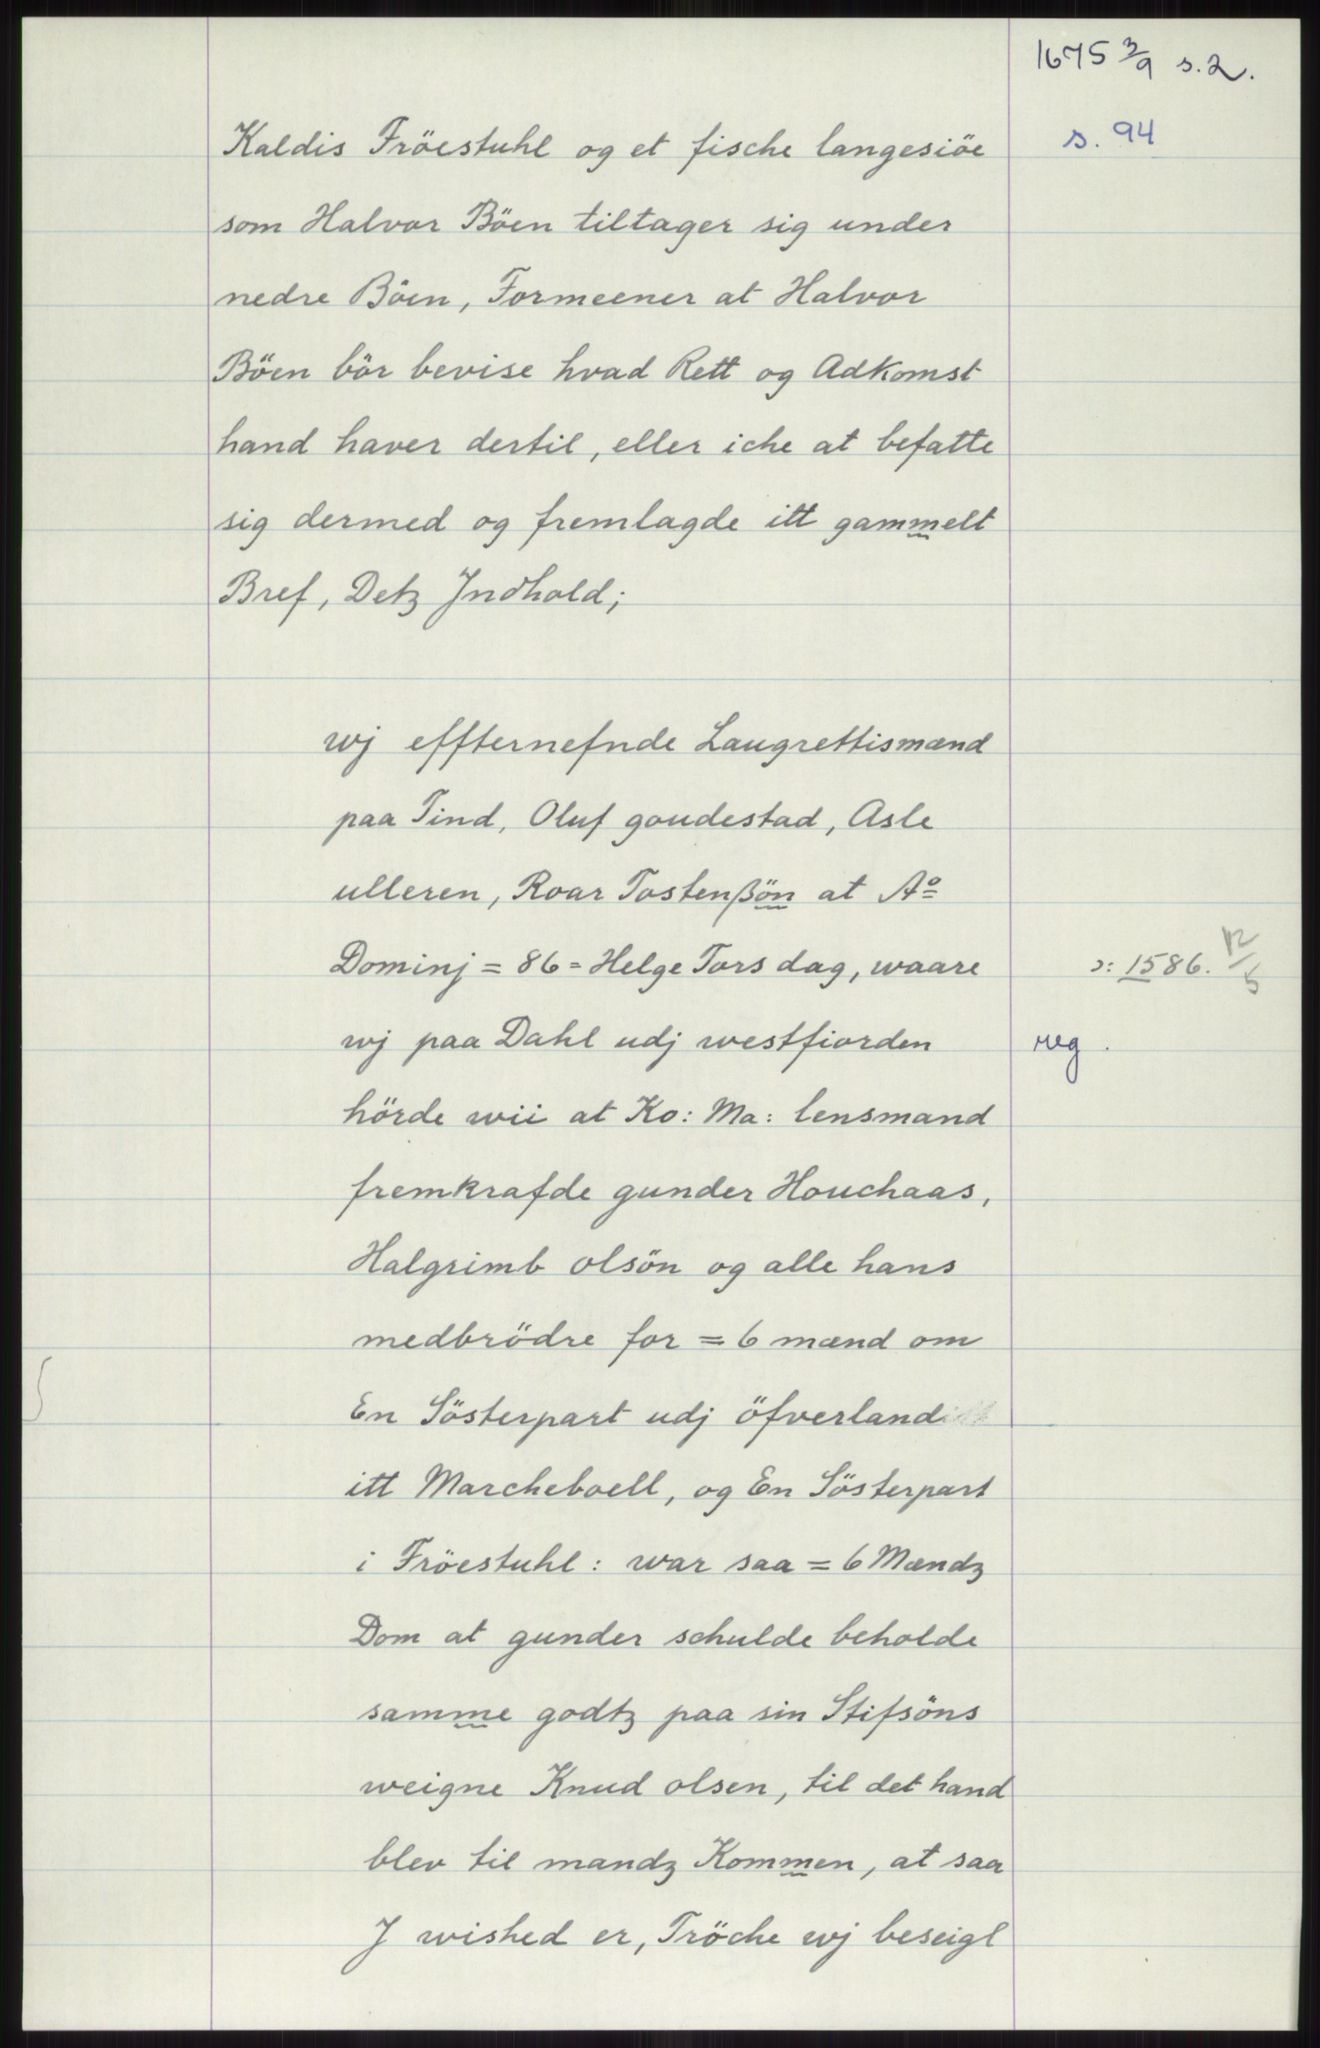 1675 3/9 s. 2.
s. 94
Kaldis Fröestuhl og et fische langesiöe
som Halvor Böen tiltager sig under
nedre Böen, Formeener at Halvor
Böen bör bevise hvad Rett og Adkomst
hand haver dertil, eller iche at befatte
sig dermed og fremlagde itt gammelt
Bref, Detz Jndhold;
wj effternefnde Laugrettismænd
paa Tind, Oluf goudestad, Asle
ulleren, Roar Tostenßön at Aº
Dominj = 86 = Helge Torsdag, waare
ɔ: 1586. 12/5
wj paa Dahl udj westfiorden
reg.
hörde wii at Ko: Ma: lensmand
fremkrafde gunder Houchaas,
Halgrimb olsön og alle hans
medbrödre for = 6 mænd om
En Sösterpart udj öfverland
itt Marcheboell, og En Sösterpart
i Fröestuhl: war saa = 6 Mændz
Dom at gunder schulde beholde
samme godtz paa sin Stifsöns
weigne Knud olsen, til det hand
blev til mandz Kommen, at saa
J wished er, Tröche wj beseigl